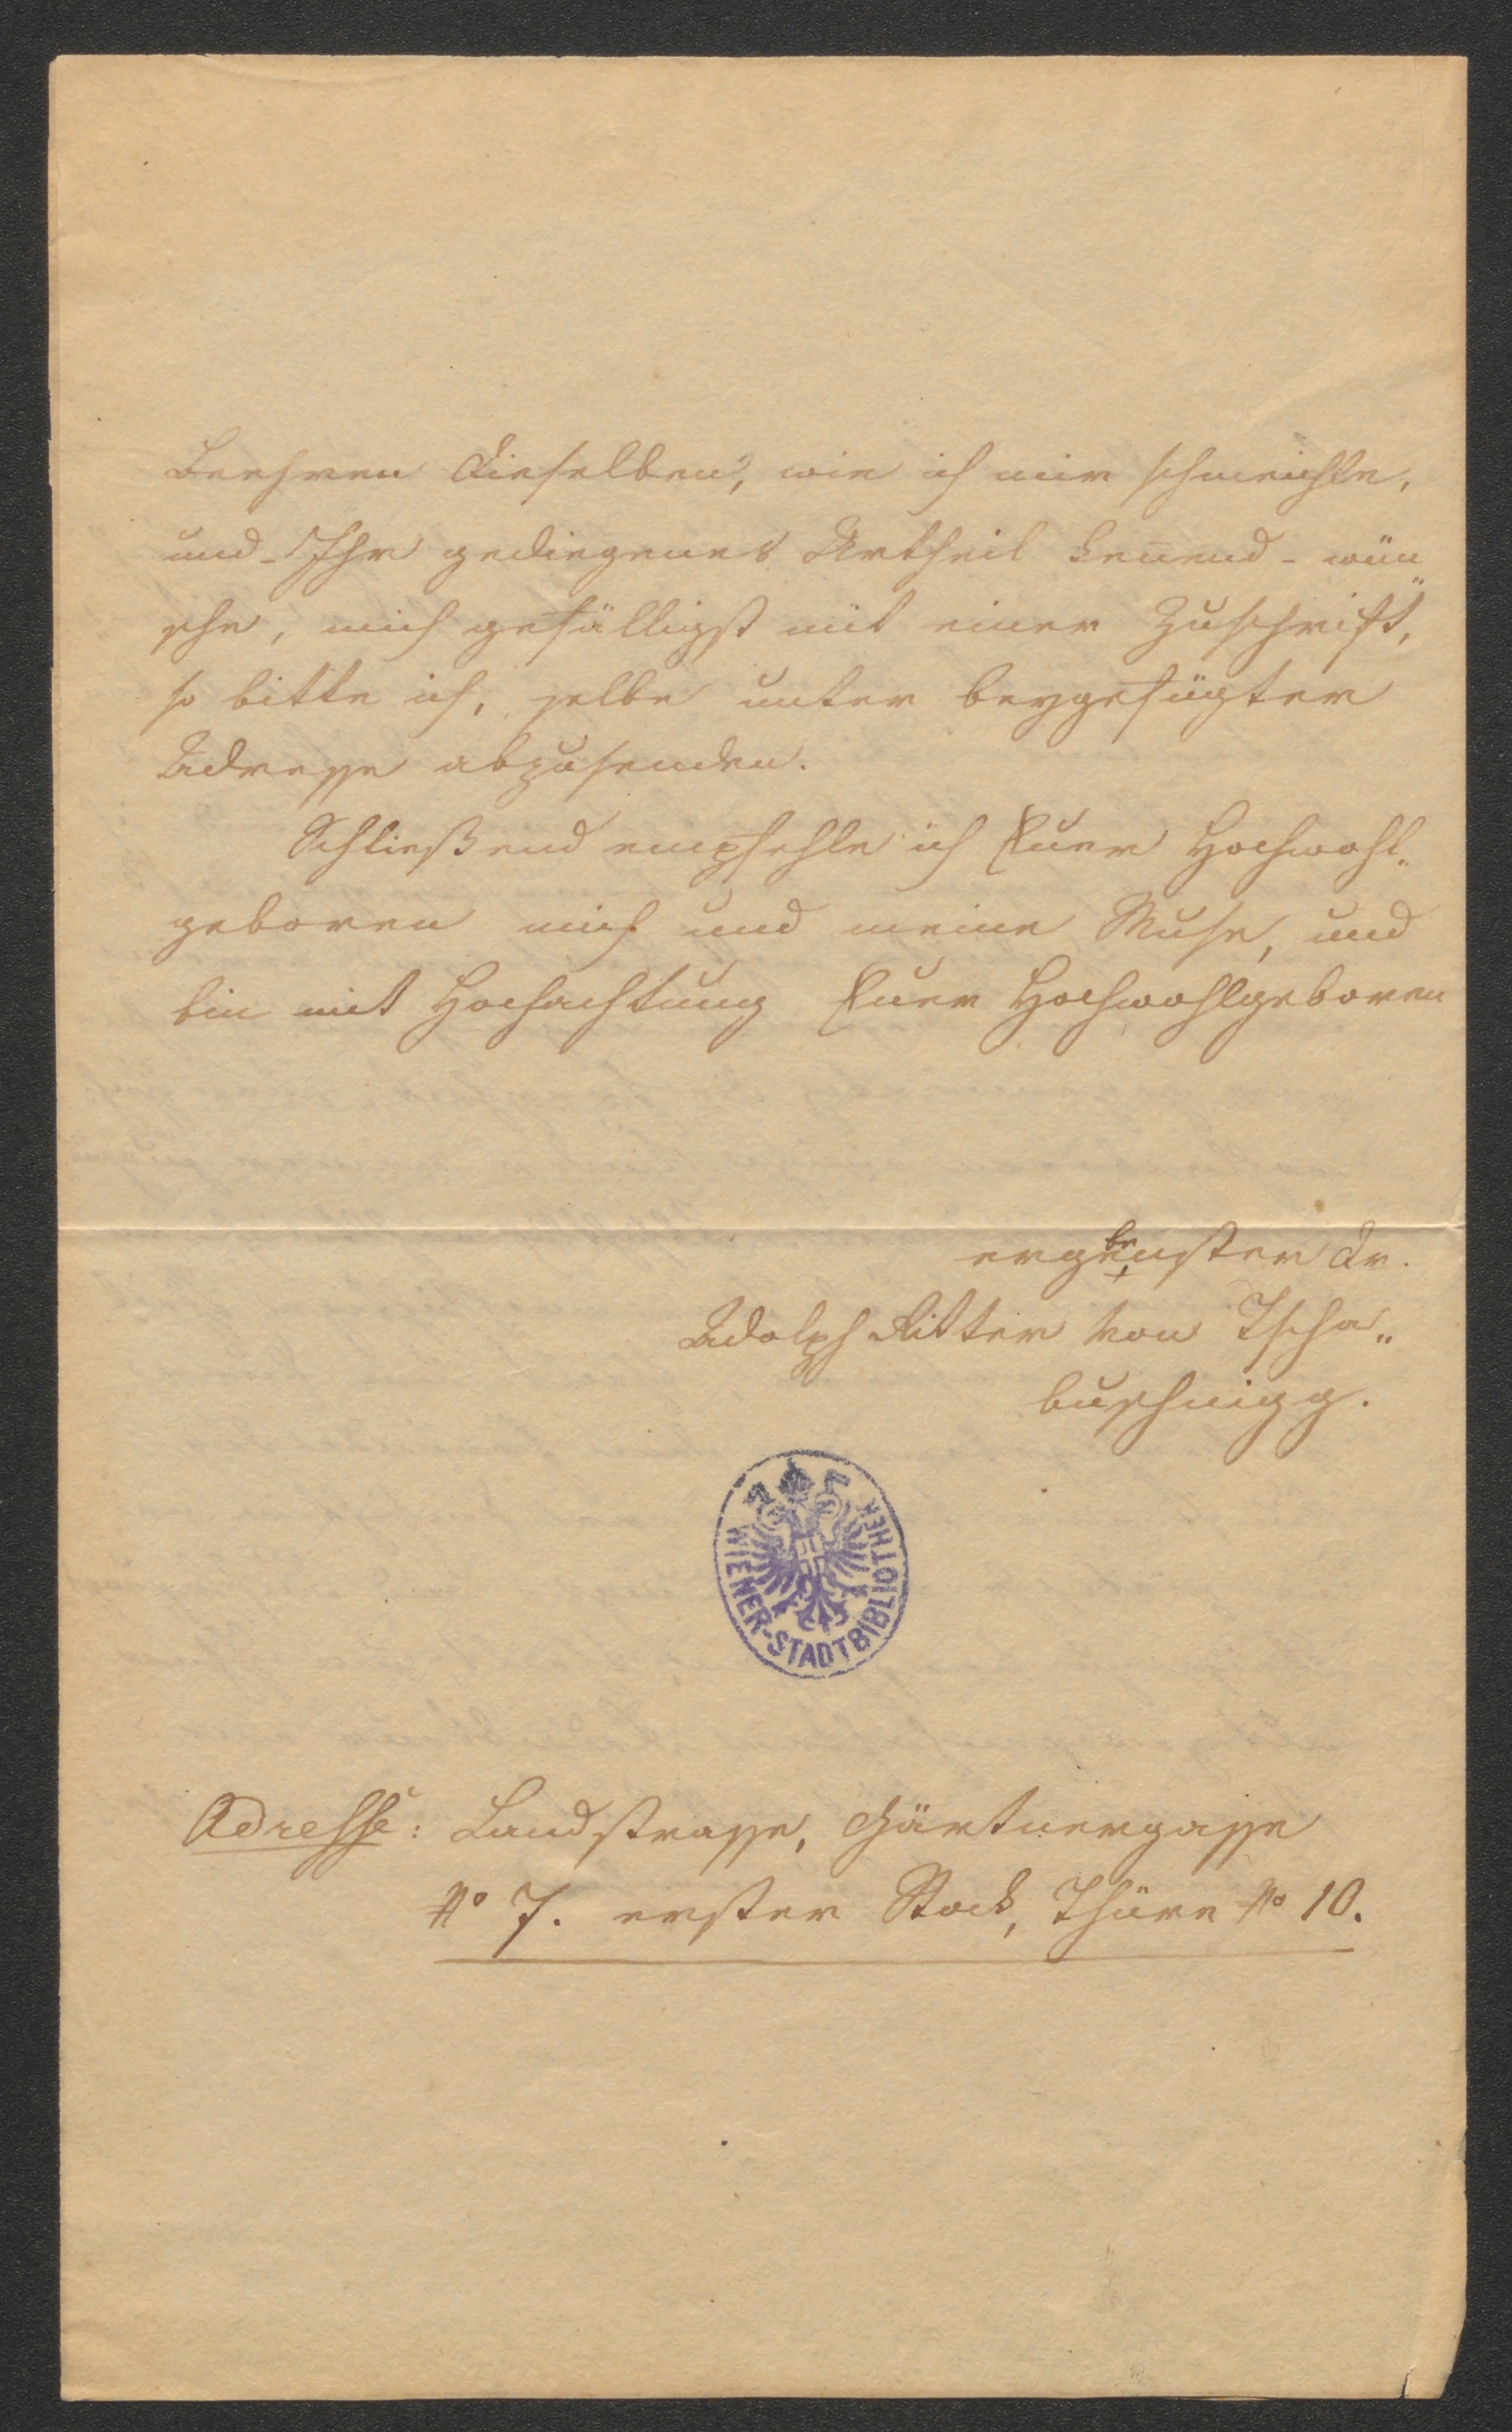 Beehren dieselben, wie ich mir schmeichle,
und - Ihr gediegenes Urtheil kenend - wün„
sche, mich gefälligst mit einer Zuschrift,
so bitte ich, selbe unter beygefügter
Adresse abzusenden.
Schließend empfehle ich Euer Hochwohl„
geboren mich und meine Muse, und
bin mit Hochachtung Euer Hochwohlgeboren
ergebenster Dr.
Adolph Ritter von Tscha„
buschnigg.
WIENER-STADTBIBLIOTHEK
Adresse: Landstrasse, Gärtnergasse
No 7. erster Stock, Thüre No 10.